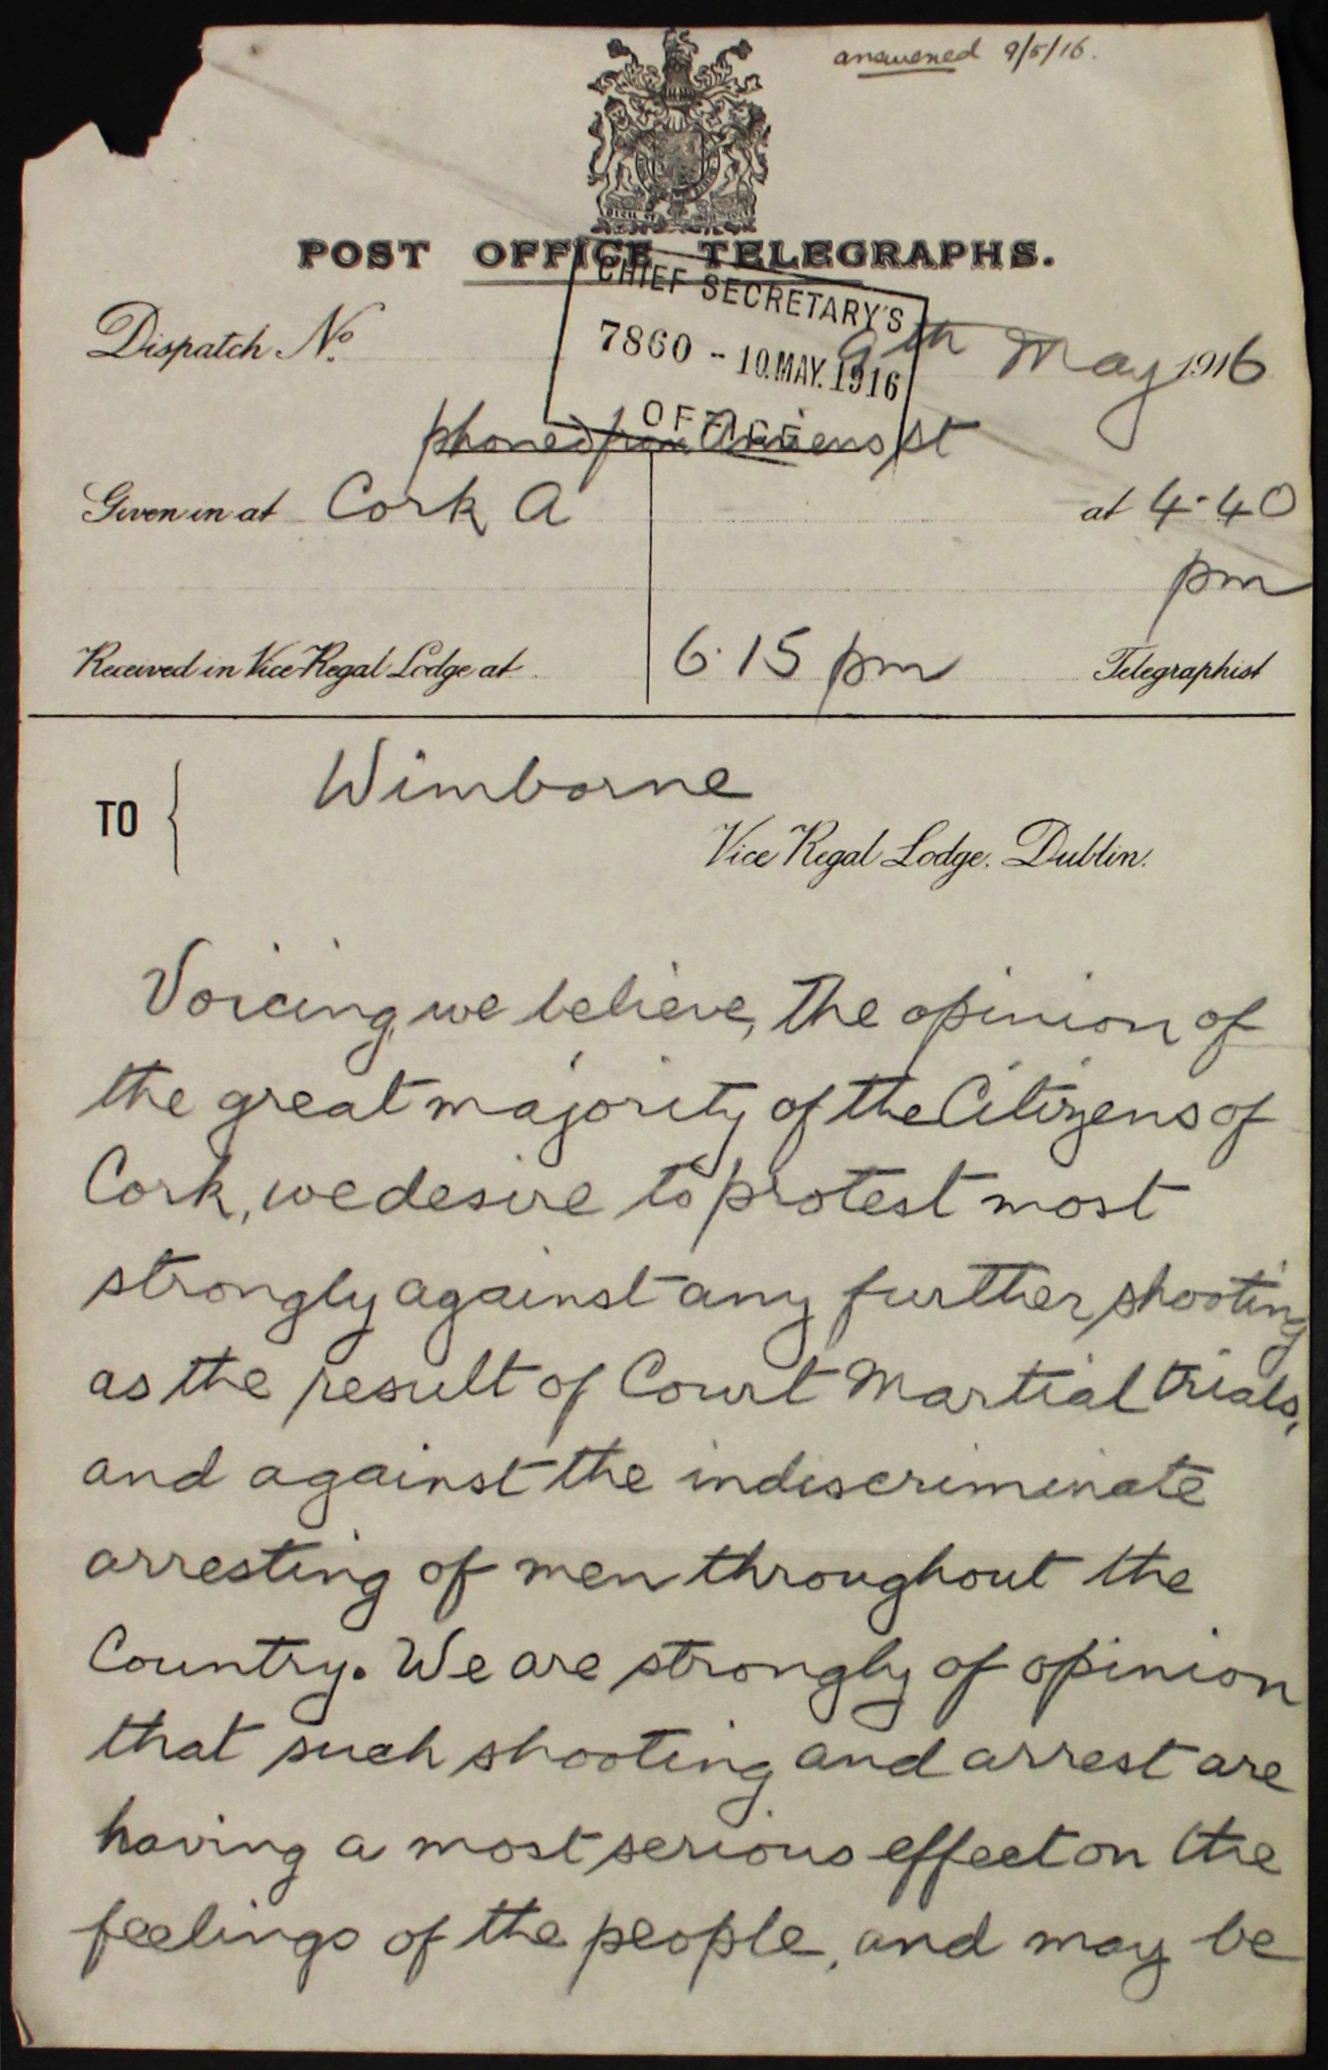 answered 9/5/16.
POST OFFICE TELEGRAPHS.
CHIEF SECRETARY'S
7860 - 10.MAY.1916
OFFICE
Dispatch No.
9th May 1916
phoned from st
Given in at Cork A at 4.40
pm
Received in Vice Regal Lodge at 6.15 pm Telegraphist
TO { Wimborne
Vice Regal Lodge. Dublin.
Voicing, we believe, the opinion of
the great majority of the Citizens of
Cork, we desire to protest most
strongly against any further shooting
as the result of Court Martial trials,
and against the indiscriminate
arresting of men throughout the
Country. We are strongly of opinion
that such shooting and arrest are
having a most serious effect on the
feelings of the people, and may be